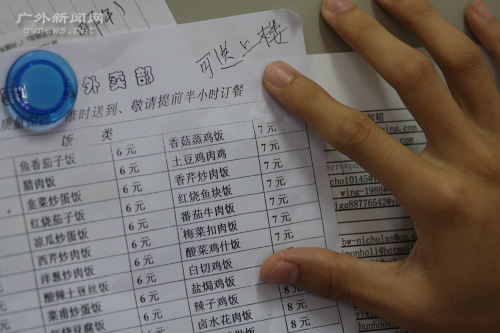 广外新闻网
gwnews.net
可送上楼
外卖部
准时送到、敬请提前半小时订餐
饭 类
鱼香茄子饭 6元 香菇蒸鸡饭 7元
腊肉饭 6元 土豆鸡肉鸡 7元
韭菜炒蛋饭 6元 香芹炒肉饭 7元
红烧茄子饭 6元 红烧鱼块饭 7元
凉瓜炒蛋饭 6元 番茄牛肉饭 7元
西芹炒肉饭 6元 梅菜扣肉饭 7元
洋葱炒肉饭 6元 酸菜鸡什饭 7元
酸辣土豆丝饭 6元 白切鸡饭
菜甫炒蛋饭 6元 盐焗鸡饭
烧豆腐饭 6元 辣子鸡饭 8元
卤水花肉饭 8元
8元
邮箱
china.com
wing-1988
jgg88776542@y
hw-nicholas@qq.